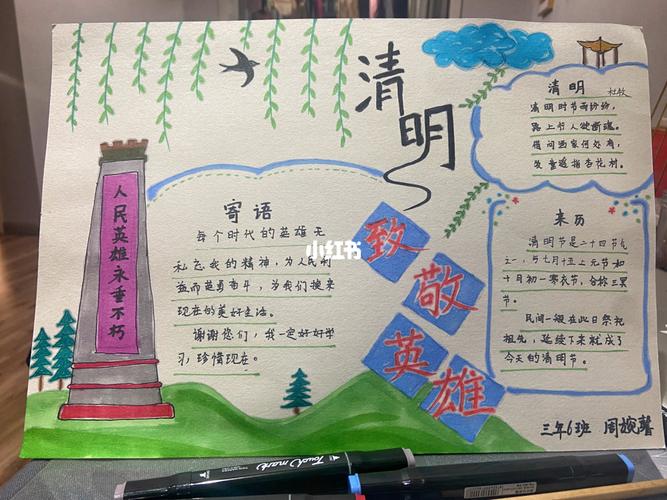 清明
清明
杜牧
清明时节雨纷纷,
路上行人欲断魂。
借问酒家何处有,
牧童遥指杏花村。
人民英雄永垂不朽
寄语
每个时代的英雄无
私忘我的精神,为人民利
益而英勇奋斗,为我们换来
现在的美好生活。
谢谢您们,我一定好好学
习,珍惜现在。
小红书
致敬英雄
来历
清明节是二十四节气
之一,与七月十五上元节和
十月初一寒衣节,合称三冥
节。
民间一般在此日祭祀
祖先,延续下来就成了
今天的清明节。
三年6班 周婉馨
Touch mark